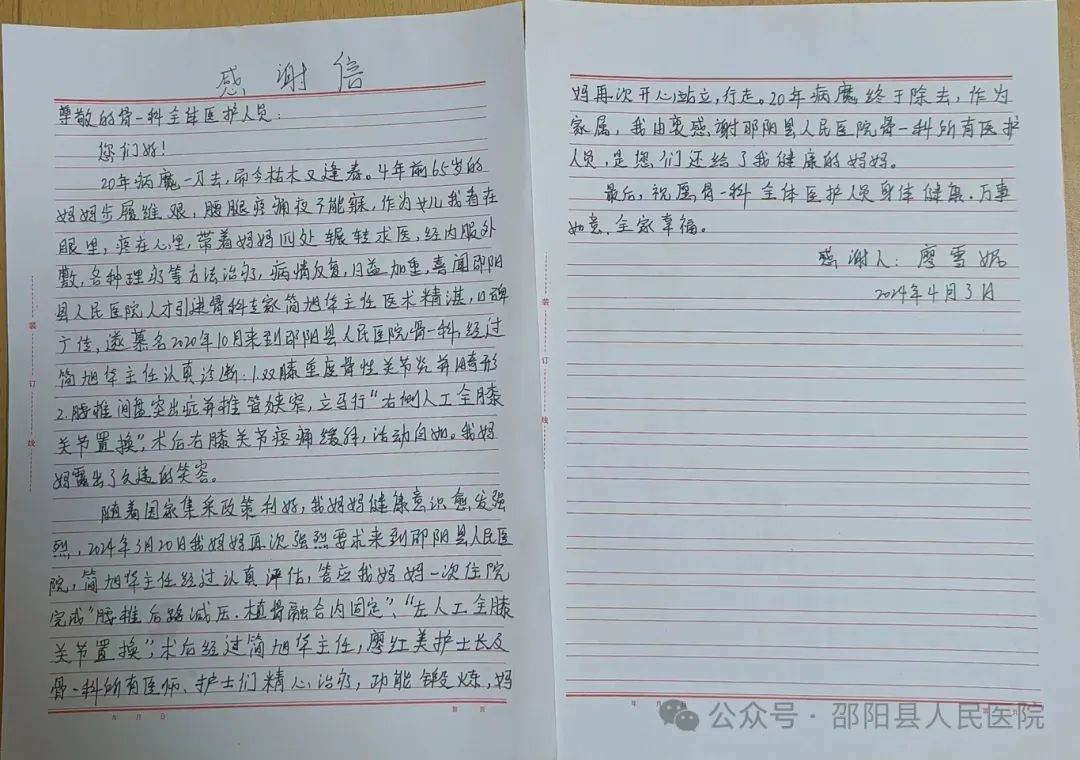 感谢信
尊敬的骨一科全体医护人员：
您们好！
20年病魔一刀去，而今枯木又逢春。4年前65岁的
妈妈步履维艰，腰腿疼痛夜不能寐，作为女儿我看在
眼里，疼在心里，带着妈妈四处辗转求医，经内服外
敷，各种理疗等方法治疗，病情反复，日益加重，喜闻邵阳
县人民医院人才引进骨科专家简旭华主任医术精湛，口碑
广传，遂慕名2020年10月来到邵阳县人民医院骨一科，经过
简旭华主任认真诊断：1.双膝重度骨性关节炎并畸形
2.腰椎间盘突出症并椎管狭窄，立马行“右侧人工全膝
关节置换”，术后右膝关节疼痛缓解，活动自如。我妈
妈露出了久违的笑容。
随着国家集采政策利好，我妈妈健康意识愈发强
烈，2024年3月20日我妈妈再次强烈要求来到邵阳县人民医
院，简旭华主任经过认真评估，答应我妈妈一次住院
完成“腰椎后路减压.植骨融合内固定”、“左人工全膝
关节置换”，术后经过简旭华主任，廖红美护士长及
骨一科所有医师、护士们精心治疗，功能锻炼，妈
年 月 日 第 页
妈再次开心站立，行走。20年病魔终于除去，作为
家属，我由衷感谢邵阳县人民医院骨一科所有医护
人员，是您们还给了我健康的妈妈。
最后，祝愿骨一科全体医护人员身体健康.万事
如意.全家幸福。
感谢人：廖雪妮
2024年4月3日
年 月
装
订
线
装
订
线
公众号·邵阳县人民医院